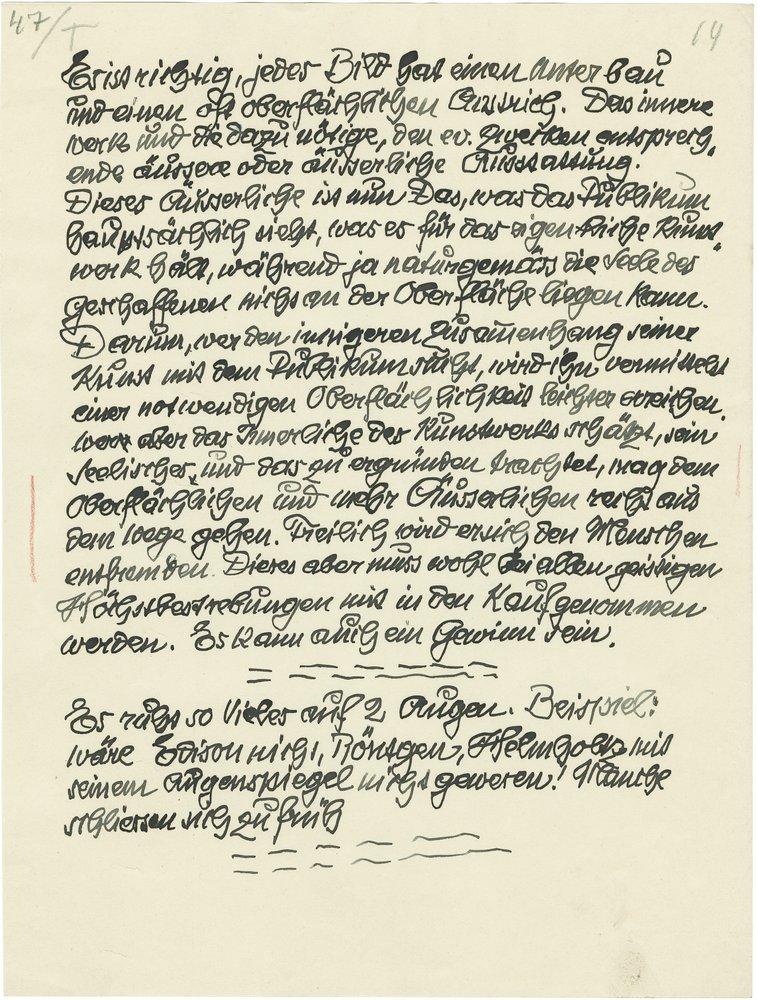 47/I
14
Es ist richtig, jedes Bild hat einen Unterbau
und einen oft oberflächlichen Anstrich. Das innere
werk und die dazu nötige, den ev. Zwecken entsprech„
ende äussere oder äusserliche Ausstattung.
Dieses Äusserliche ist nun Das, was das Publikum
hauptsächlich sieht, was es für das eigentliche Kunst„
werk hält, während ja naturgemäss die Seele des
geschaffenen nicht an der Oberfläche liegen kann.
Darum, wer den innigeren Zusam̄enhang seiner
Kunst mit dem Publikum sucht, wird ihn vermittelst
einer notwendigen Oberflächlichkeit leichter erreichen.
wer aber das Innerliche des Kunstwerks schätzt, sein
Seelisches, und das zu ergründen trachtet, mag dem
Oberflächlichen und mehr Äusserlichen recht aus
dem wege gehen. Freilich wird er sich den Menschen
entfremden. Dieses aber muss wohl bei allen geistigen
Höchstbestrebungen mit in den Kauf genommen
werden. Es kann auch ein Gewinn sein.
Es ruht so Vieles auf 2 Augen. Beispiel:
wäre Edison nicht, Röntgen, Helmholtz mit
seinem Augenspiegel nicht gewesen! Manche
schliessen sich zu früh